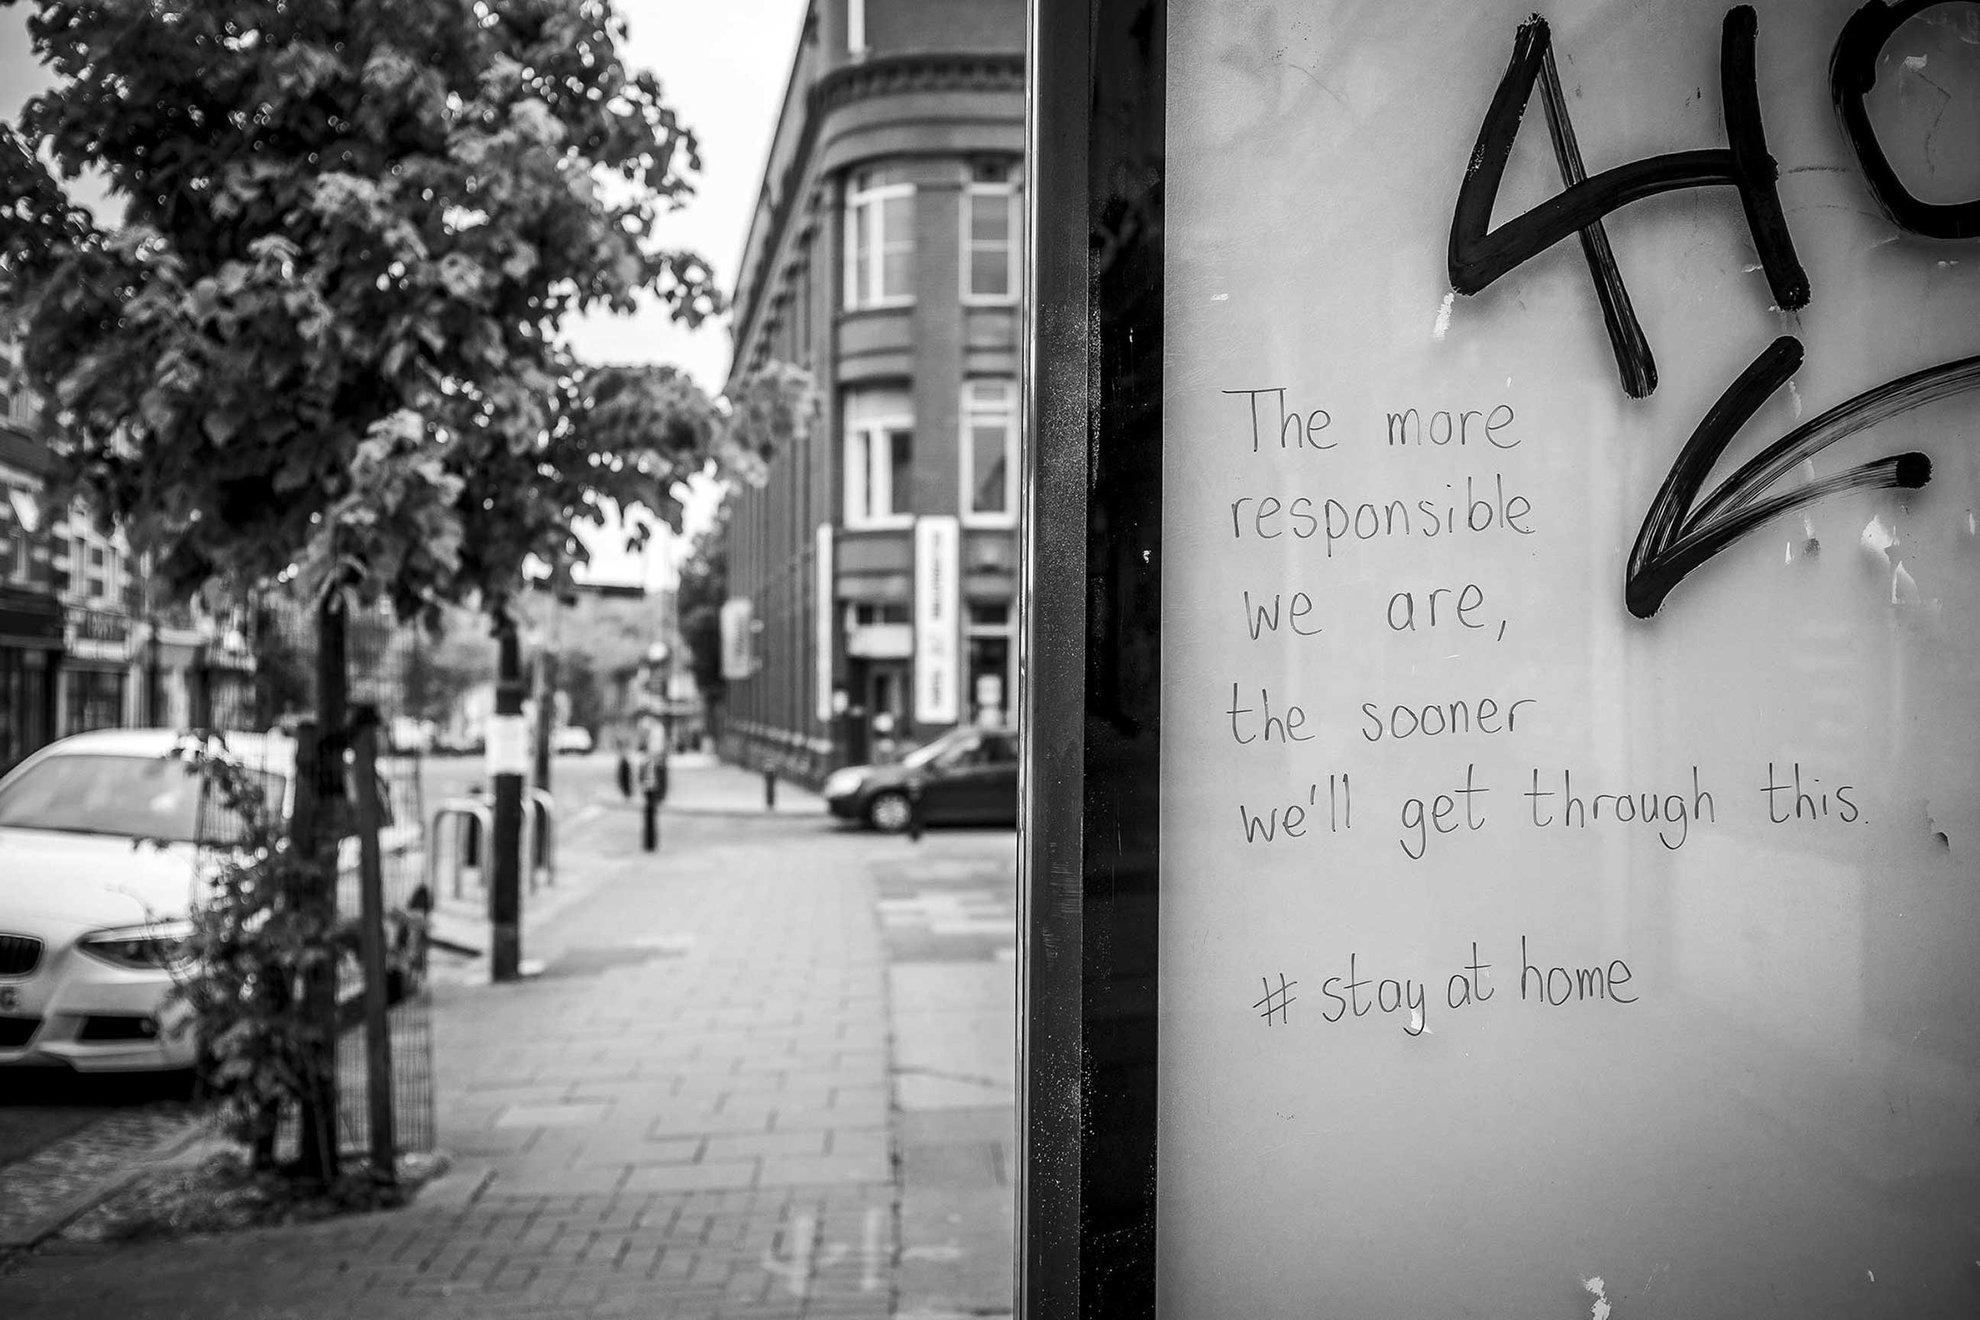 The more
responsible
we are,
the sooner
we'll get through this.
# stay at home